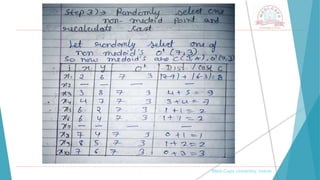 Step 3) → Randomly select one
non-medoid point and
recalculate cost
Let randomly select one of
non medoid's O' (7, 3).
So now medoid's are C1(3,4), O'(7,3)
i x y O' Dist/Cost C
x1 2 6 7 3 |7-2|+|6-3|=8
x2 — — — —
x3 3 8 7 3 4+5=9
x4 4 7 7 3 3+4=7
x5 6 2 7 3 1+1=2
x6 6 4 7 3 1+1=2
x7 — — — —
x8 7 4 7 3 0+1=1
x9 8 5 7 3 1+2=3
x10 7 6 7 3 0+3=3